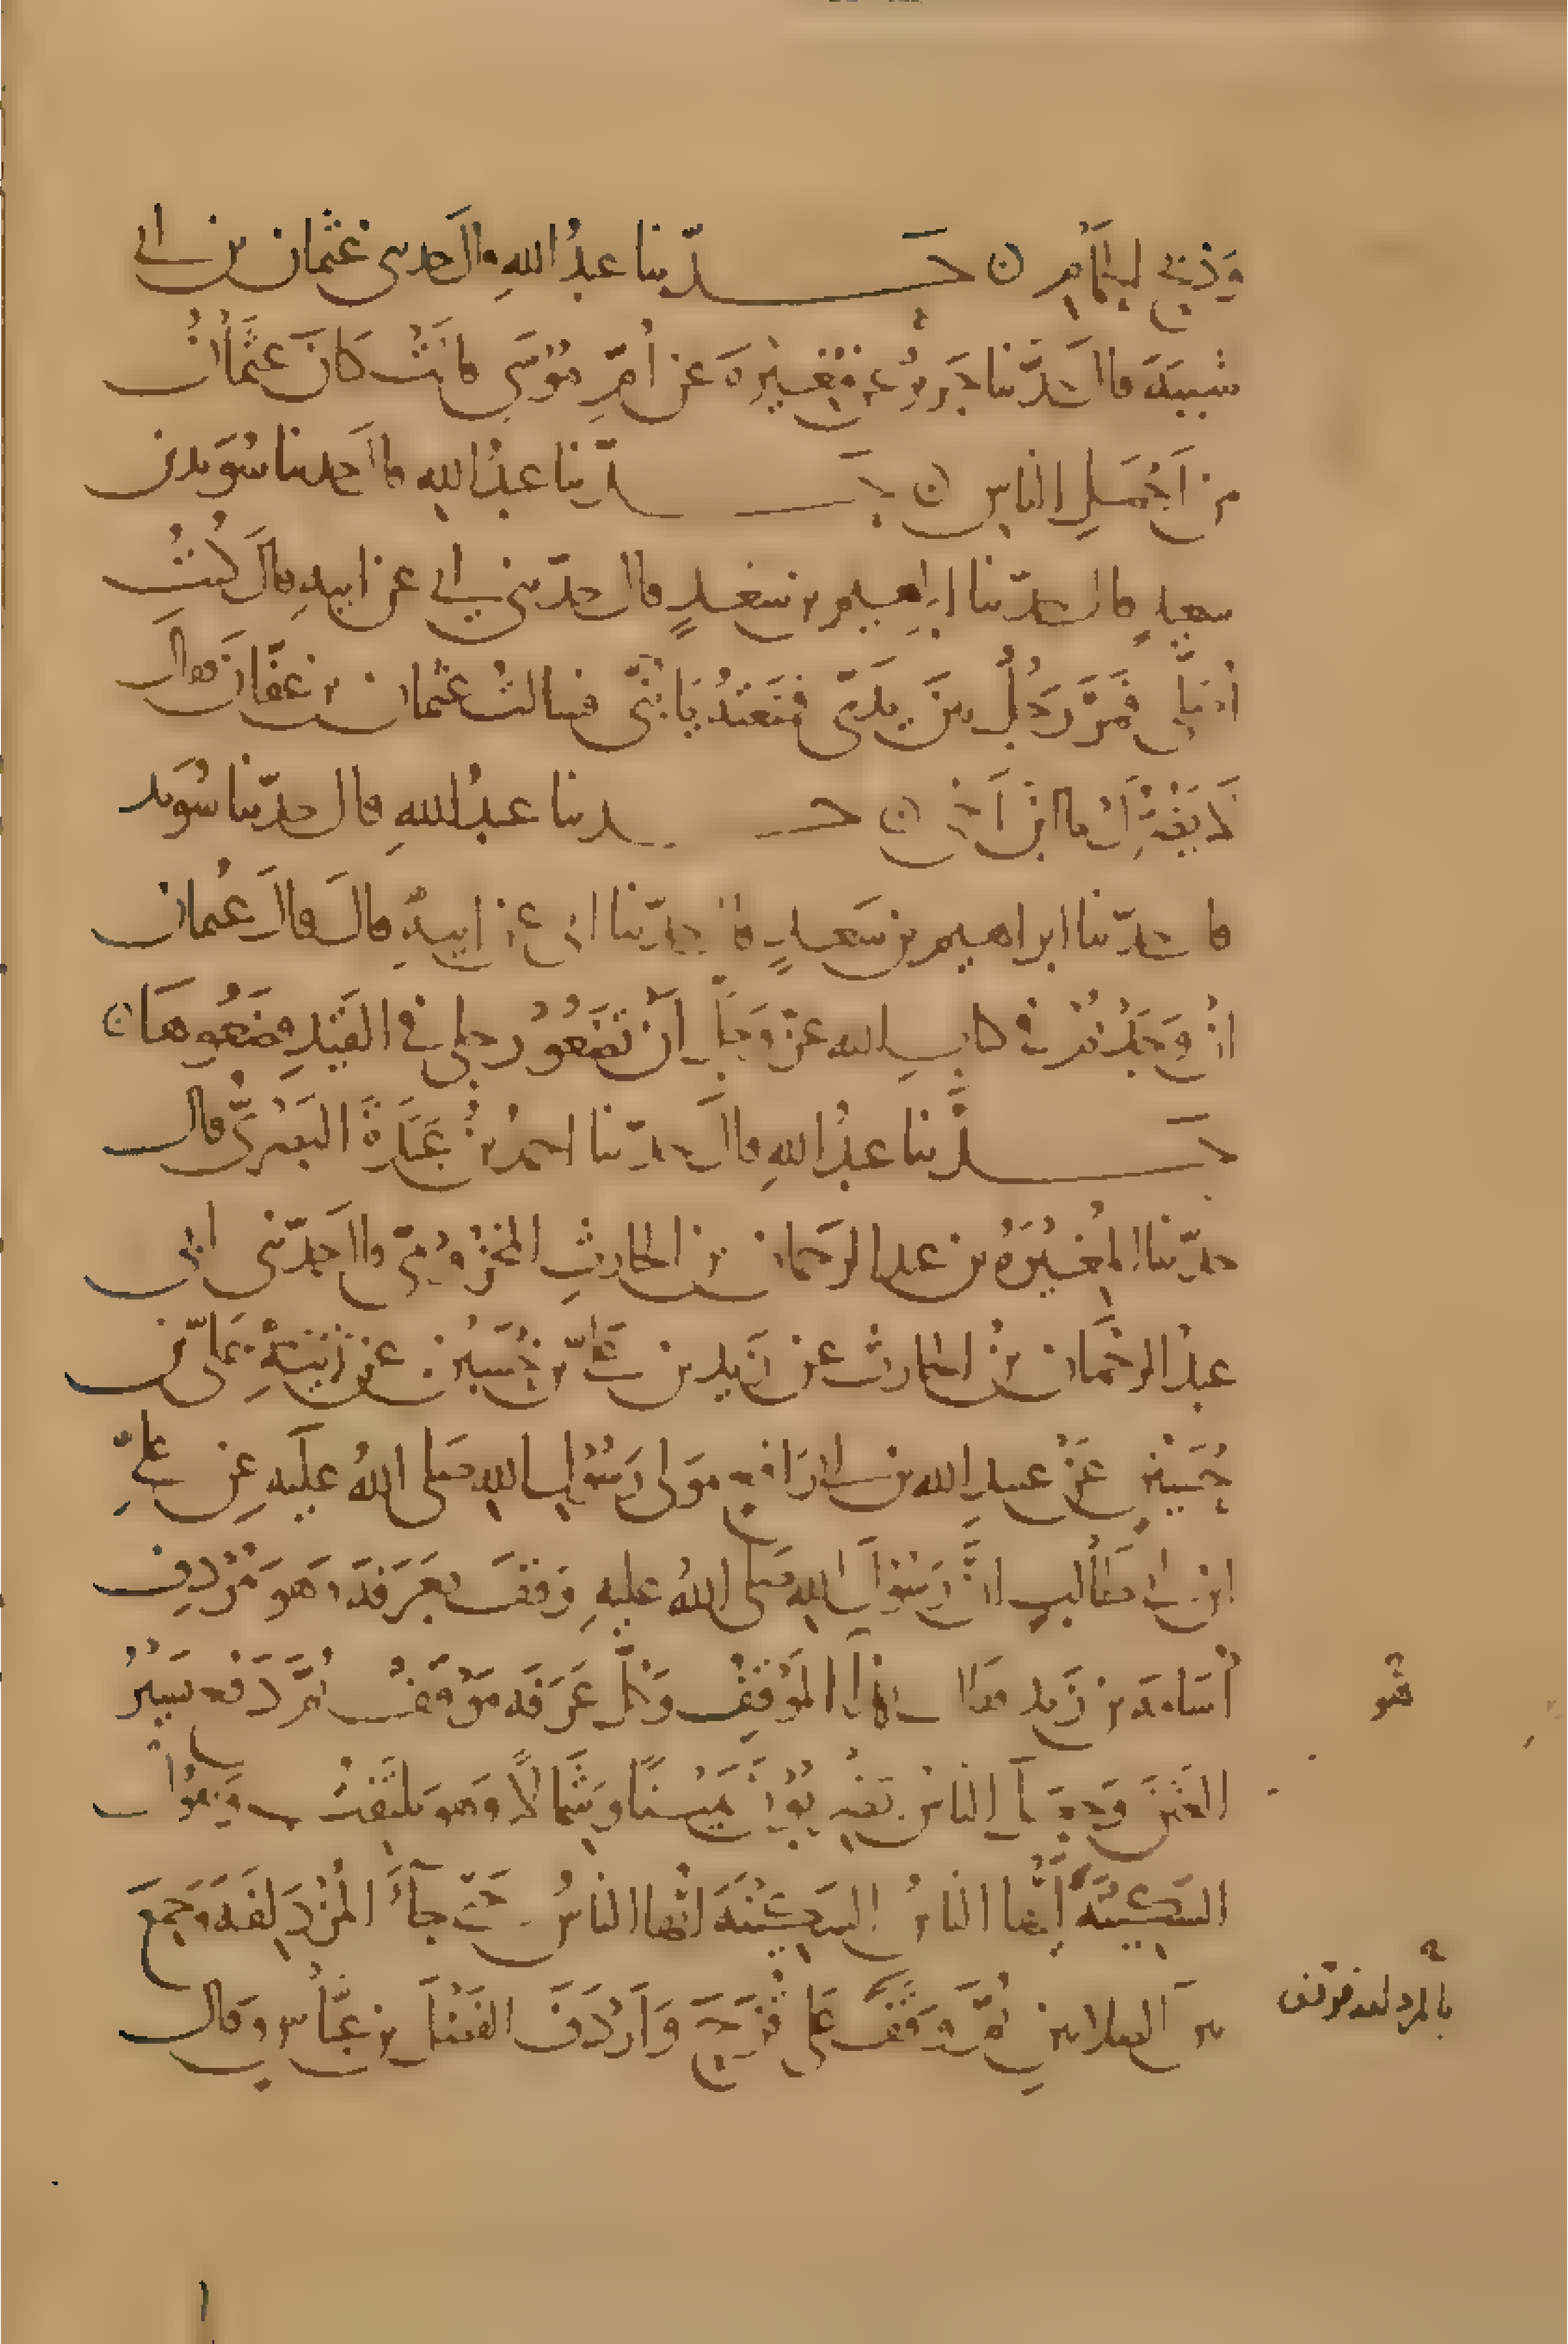 وَذبح الحمام ن حَــدّثنا عبدُ اللهِ قالَ حدثنى عُثمان بن ابى
شيبَةَ قالَ حَدَّثنا جَريرٌ عن مُغِيْرَةَ عن اُمِّ مُوْسَى قالَتْ كانَ عثمَانُ
من اَجْمَلِ الناسِ ن حَــدّثنا عبدُ اللهِ قالَ حدثنا سُوَيد بن
سعيدٍ قال حدّثنا ابراهيم بن سَعْدٍ قال حدّثنى ابى عن ابيهِ قالَ كُنتُ
اُصَلِّى فَمَرَّ رَجُلٌ بينَ يَدَىَّ فمَنَعْتُهُ فَاَبَى فسالتُ عثمان بن عفّانَ فقالَ
لا يَضُرُّكَ يا ابنَ اَخى ن حَــدثنا عبدُ اللهِ قال حدّثنا سُوَيد
قال حدّثنا ابراهيم بن سَعدٍ قال حدّثنا ابى عن ابيهِ قالَ قالَ عُثمان
انْ وَجَدْتُمْ فى كتابِ الله عزّ وَجلَّ اَنْ تَضَعُوْا رجلى فى القَيْدِ فضَعُوها ن
حَــدّثنا عبدُ اللهِ قالَ حدّثنا احمدُ بنُ عَبْدَةَ البَصْرِىُّ قال
حدّثنا المُغيْرَةُ بن عبد الرحمان بن الحارثِ المخزُوْمِىّ قالَ حدّثنى ابى
عبدُ الرحمَان بنُ الحارث عن زَيد بن عَلىّ بن حُسَيْن عن ابيهِ علىّ بن
حُسَيْنٍ عَنْ عبيد الله بن ابى رَافِعٍ مولى رَسُوْلِ اللهِ صلى اللهُ علَيهِ عن علىِّ
ابن ابى طَالبٍ انَّ رَسُوْلَ اللهِ صلى اللهُ عليهِ وَقفَ بعَرَفَةَ وَهوَ مُرْدِف
اُسَامَةَ بن زَيد فقال هذَا المَوْقِفُ وَكلُّ عَرَفَة مَوْقفٌ ثمَّ دَفع يَسِيْرُ
العَنَقَ وَجعَلَ الناسُ يَضْرِبُوْنَ يَمِيْنًا وشِمَالًا وَهو يلتَفِتُ وَيقُوْلُ
السَكِيْنَةَ اَيُّها الناسُ السَكِيْنَةَ ايُّها الناسُ حَتى جآءَ المُزْدَلِفَةَ وَجمعَ
بينَ الصلاتينِ ثمَّ وَقَفَ
هُو
بالمزدلفة فوقف
عَلى قُزَحَ وَاَرْدَفَ الفَضْلَ بن عبَّاسٍ وَقال